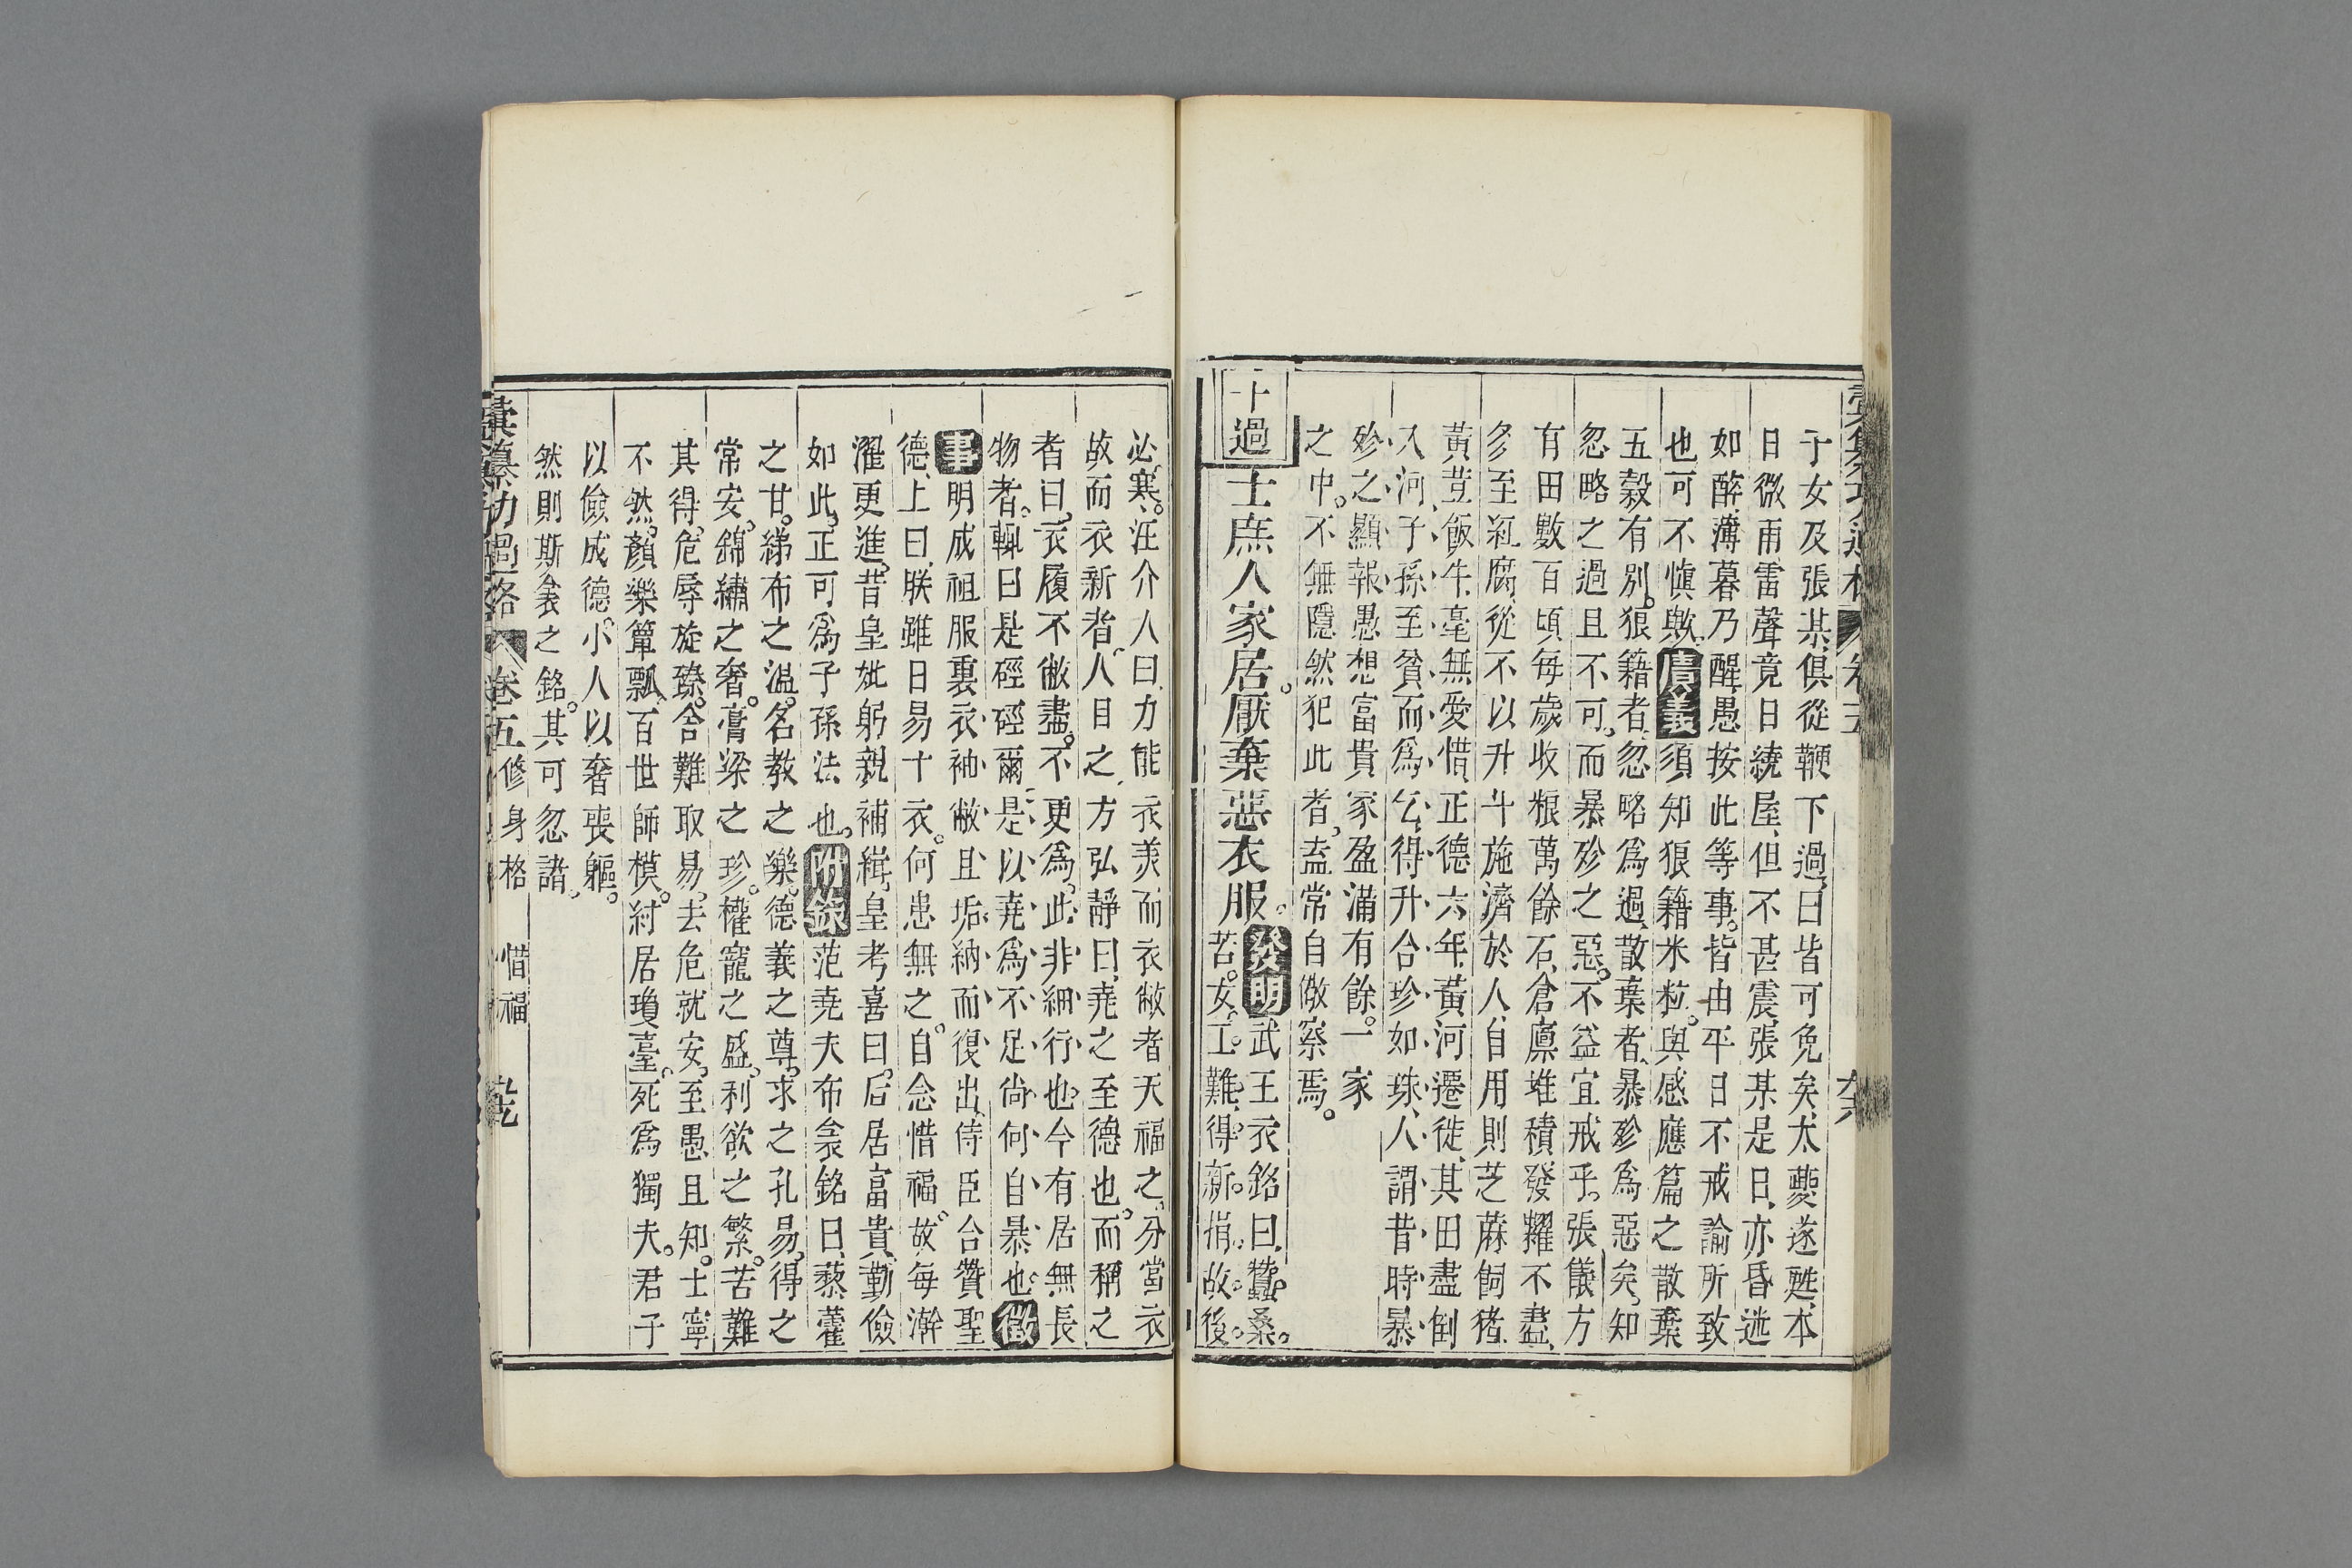 于女及張某俱從鞭下過曰皆可免矣太夔遂甦本
日微雨雷聲竟日繞屋但不甚震張某是日亦昏迷
如醉薄暮乃醒愚按此等事皆由平日不戒諭所致
也可不慎歟廣義須知狼籍米粒與感應篇之散棄
五穀有別狼籍者忽略爲過散棄者暴殄爲惡矣知
忽略之過且不可而暴殄之惡不益宜戒乎張儀方
有田數百頃每歲收粮萬餘石倉廪堆積發糶不盡
多至氣腐從不以升斗施濟於人自用則芝蔴飼猪
黃荳飯牛毫無愛惜正德六年黃河遷徙其田盡倒
入河子孫至貧而爲乞得升合珍如珠人謂昔時暴
殄之顯報愚想富貴家盈滿有餘一家
之中不無隱然犯此者盍常自儆察焉
十過 士庶人家居厭棄惡衣服發明武王衣銘曰蠶桑
苦女工難得新捐故後
必寒汪介人曰力能衣美而衣敝者天福之分當衣
故而衣新者人目之方弘靜曰堯之至德也而稱之
者曰衣履不敝盡不更爲此非細行也今有居無長
物者輒曰是硜硜爾是以堯爲不足尚何自暴也徵
事明成祖服裏衣袖敝且垢納而復出侍臣合贊聖
德上曰朕雖日易十衣何患無之自念惜福故每澣
濯更進昔皇妣躬親補緝皇考喜曰后居富貴勤儉
如此正可爲子孫法也附錄范堯夫布衾銘曰藜藿
之甘綈布之溫名教之樂德義之尊求之孔易得之
常安錦繡之奢膏粱之珍權寵之盛利欲之繁苦難
其得危辱旋臻舍難取易去危就安至愚且知士寧
不然顏樂簞瓢百世師模紂居瓊臺死爲獨夫君子
以儉成德小人以奢喪軀
然則斯衾之銘其可忽諸
彙纂功過格 卷五 修身格 惜福